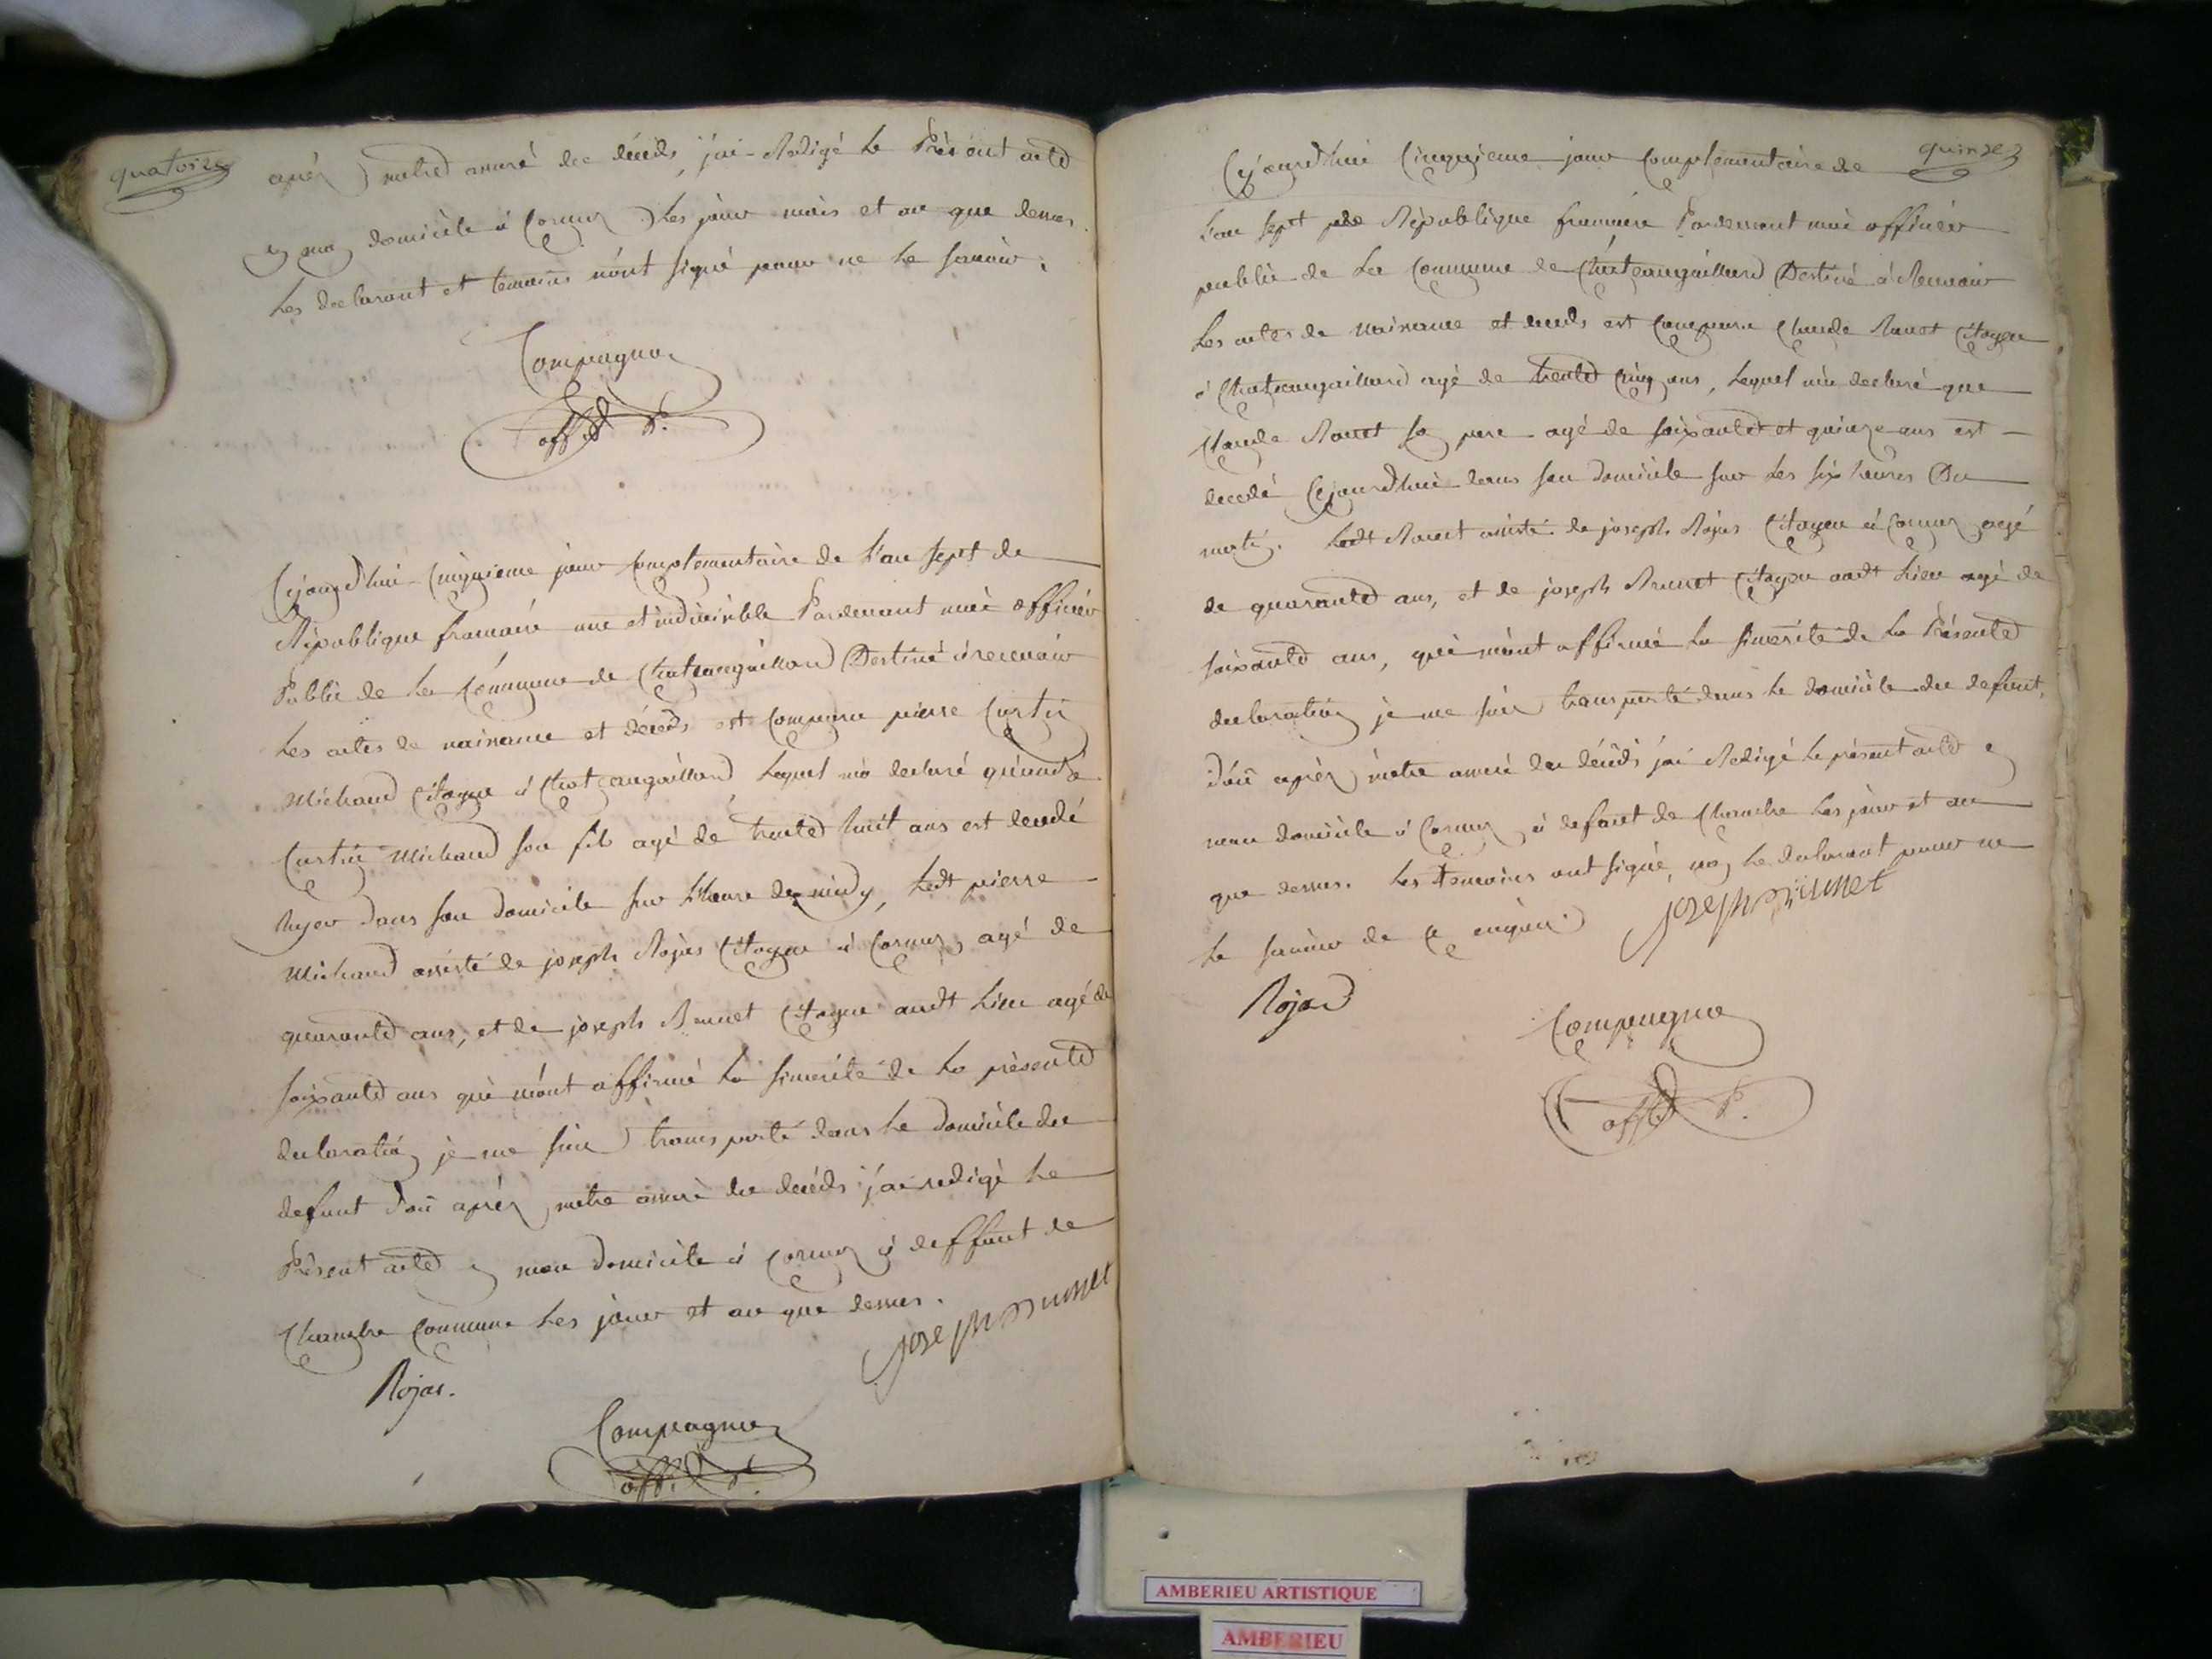 quatorze
après mètre assuré du décéds, j'ai Rédigé le Présent acte
en mon domicile à Cormoz les jour mois et an que dessus.
les declarant et temoins n'ont signé pour ne le savoir.
Compagnon
off. P.
Cejourd'hui cinquieme jour complementaire de l'an sept de
République francaise une et indivisible Pardevant moi officier
Public de la Commune de Chateaugaillard Destiné à recevoir
les actes de naissance et décéds est comparu pierre Curtil
Michaud Citoyen à Chateaugaillard lequel m'a declaré qu'
Curtil Michaud son fils agé de trente huit ans est decedé
hyer dans son domicile sur l'heure de midy, ledt pierre
Michaud assisté de joseph Rojas Citoyen à Cormoz agé de
quarante ans, et de joseph Brunet Citoyen audt lieu agé de
soixante ans qui m'ont affirmé la sincerité de la présente
declaration je me suis transporté dans le domicile du
defunt d'où après mètre assuré du decéds j'ai redigé le
Présent acte en mon domicile à Cormoz à deffaut de
Chambre Commune les jour et an que dessus.
joseph Brunet
Rojas.
Compagnon
off. P.
quinze
Cejourd'hui Cinquieme jour Complementaire de
l'an sept de République francaise Pardevant moi officier
public de la Commune de Chateaugaillard Destiné à Recevoir
les actes de naissance et decéds est Comparu Claude Citoyen
à Chateaugaillard agé de trente cinq ans, lequel m'a declaré que
Claude son pere agé de soixante et quinze ans est
decedé Cejourd'hui dans son domicile sur les six heures Du
matin. Ledt assisté de joseph Rojas Citoyen à Cormoz agé
de quarante ans, et de joseph Brunet Citoyen audt lieu agé de
soixante ans, qui m'ont affirmé la sincerité de la Présente
declaration je me suis transporté dans le domicile du defunt,
d'où après mètre assuré du décéds j'ai Redigé le présent acte en
mon domicile à Cormoz à defaut de Chambre les jour et an
que dessus. les temoins ont signé, non le declarant pour ne
le savoir de ce enquis
joseph Brunet
Rojas
Compagnon
off. P.
AMBERIEU ARTISTIQUE
AMBERIEU